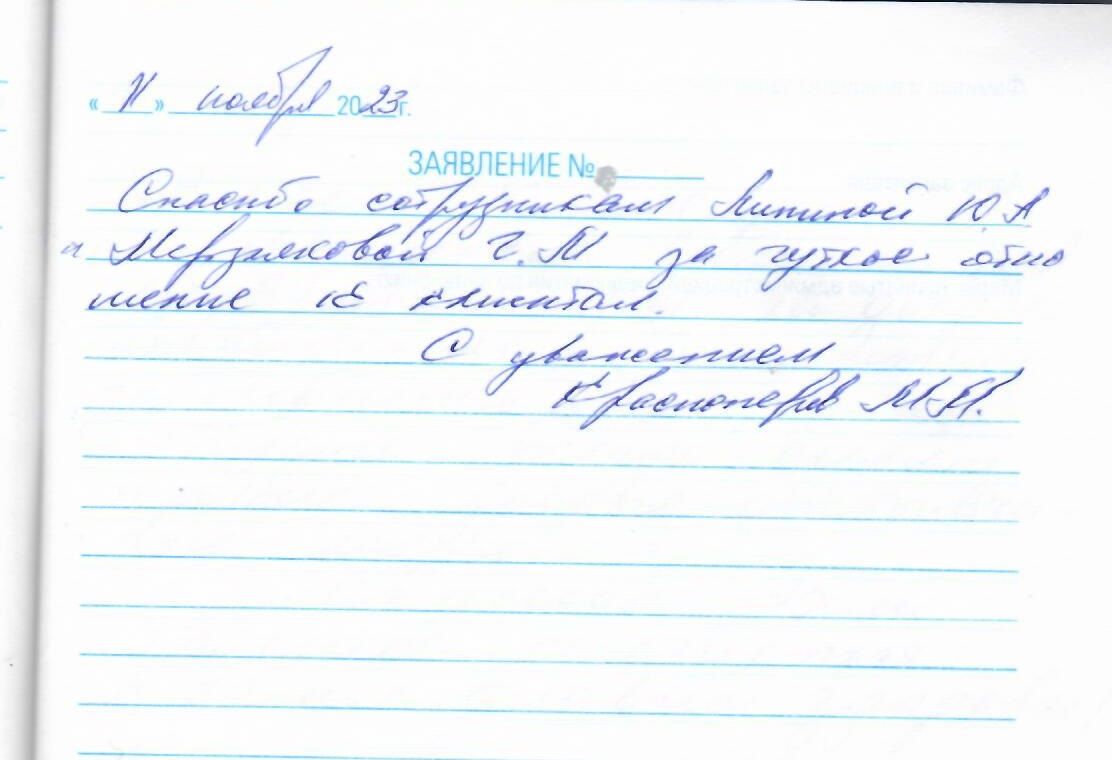 « 11 » ноября 2023г.
ЗАЯВЛЕНИЕ №
Спасибо сотрудникам Липиной Ю А
и Мерзляковой Г. М за чуткое отно
шение к клиентам.
С уважением
Красноперов М.М.